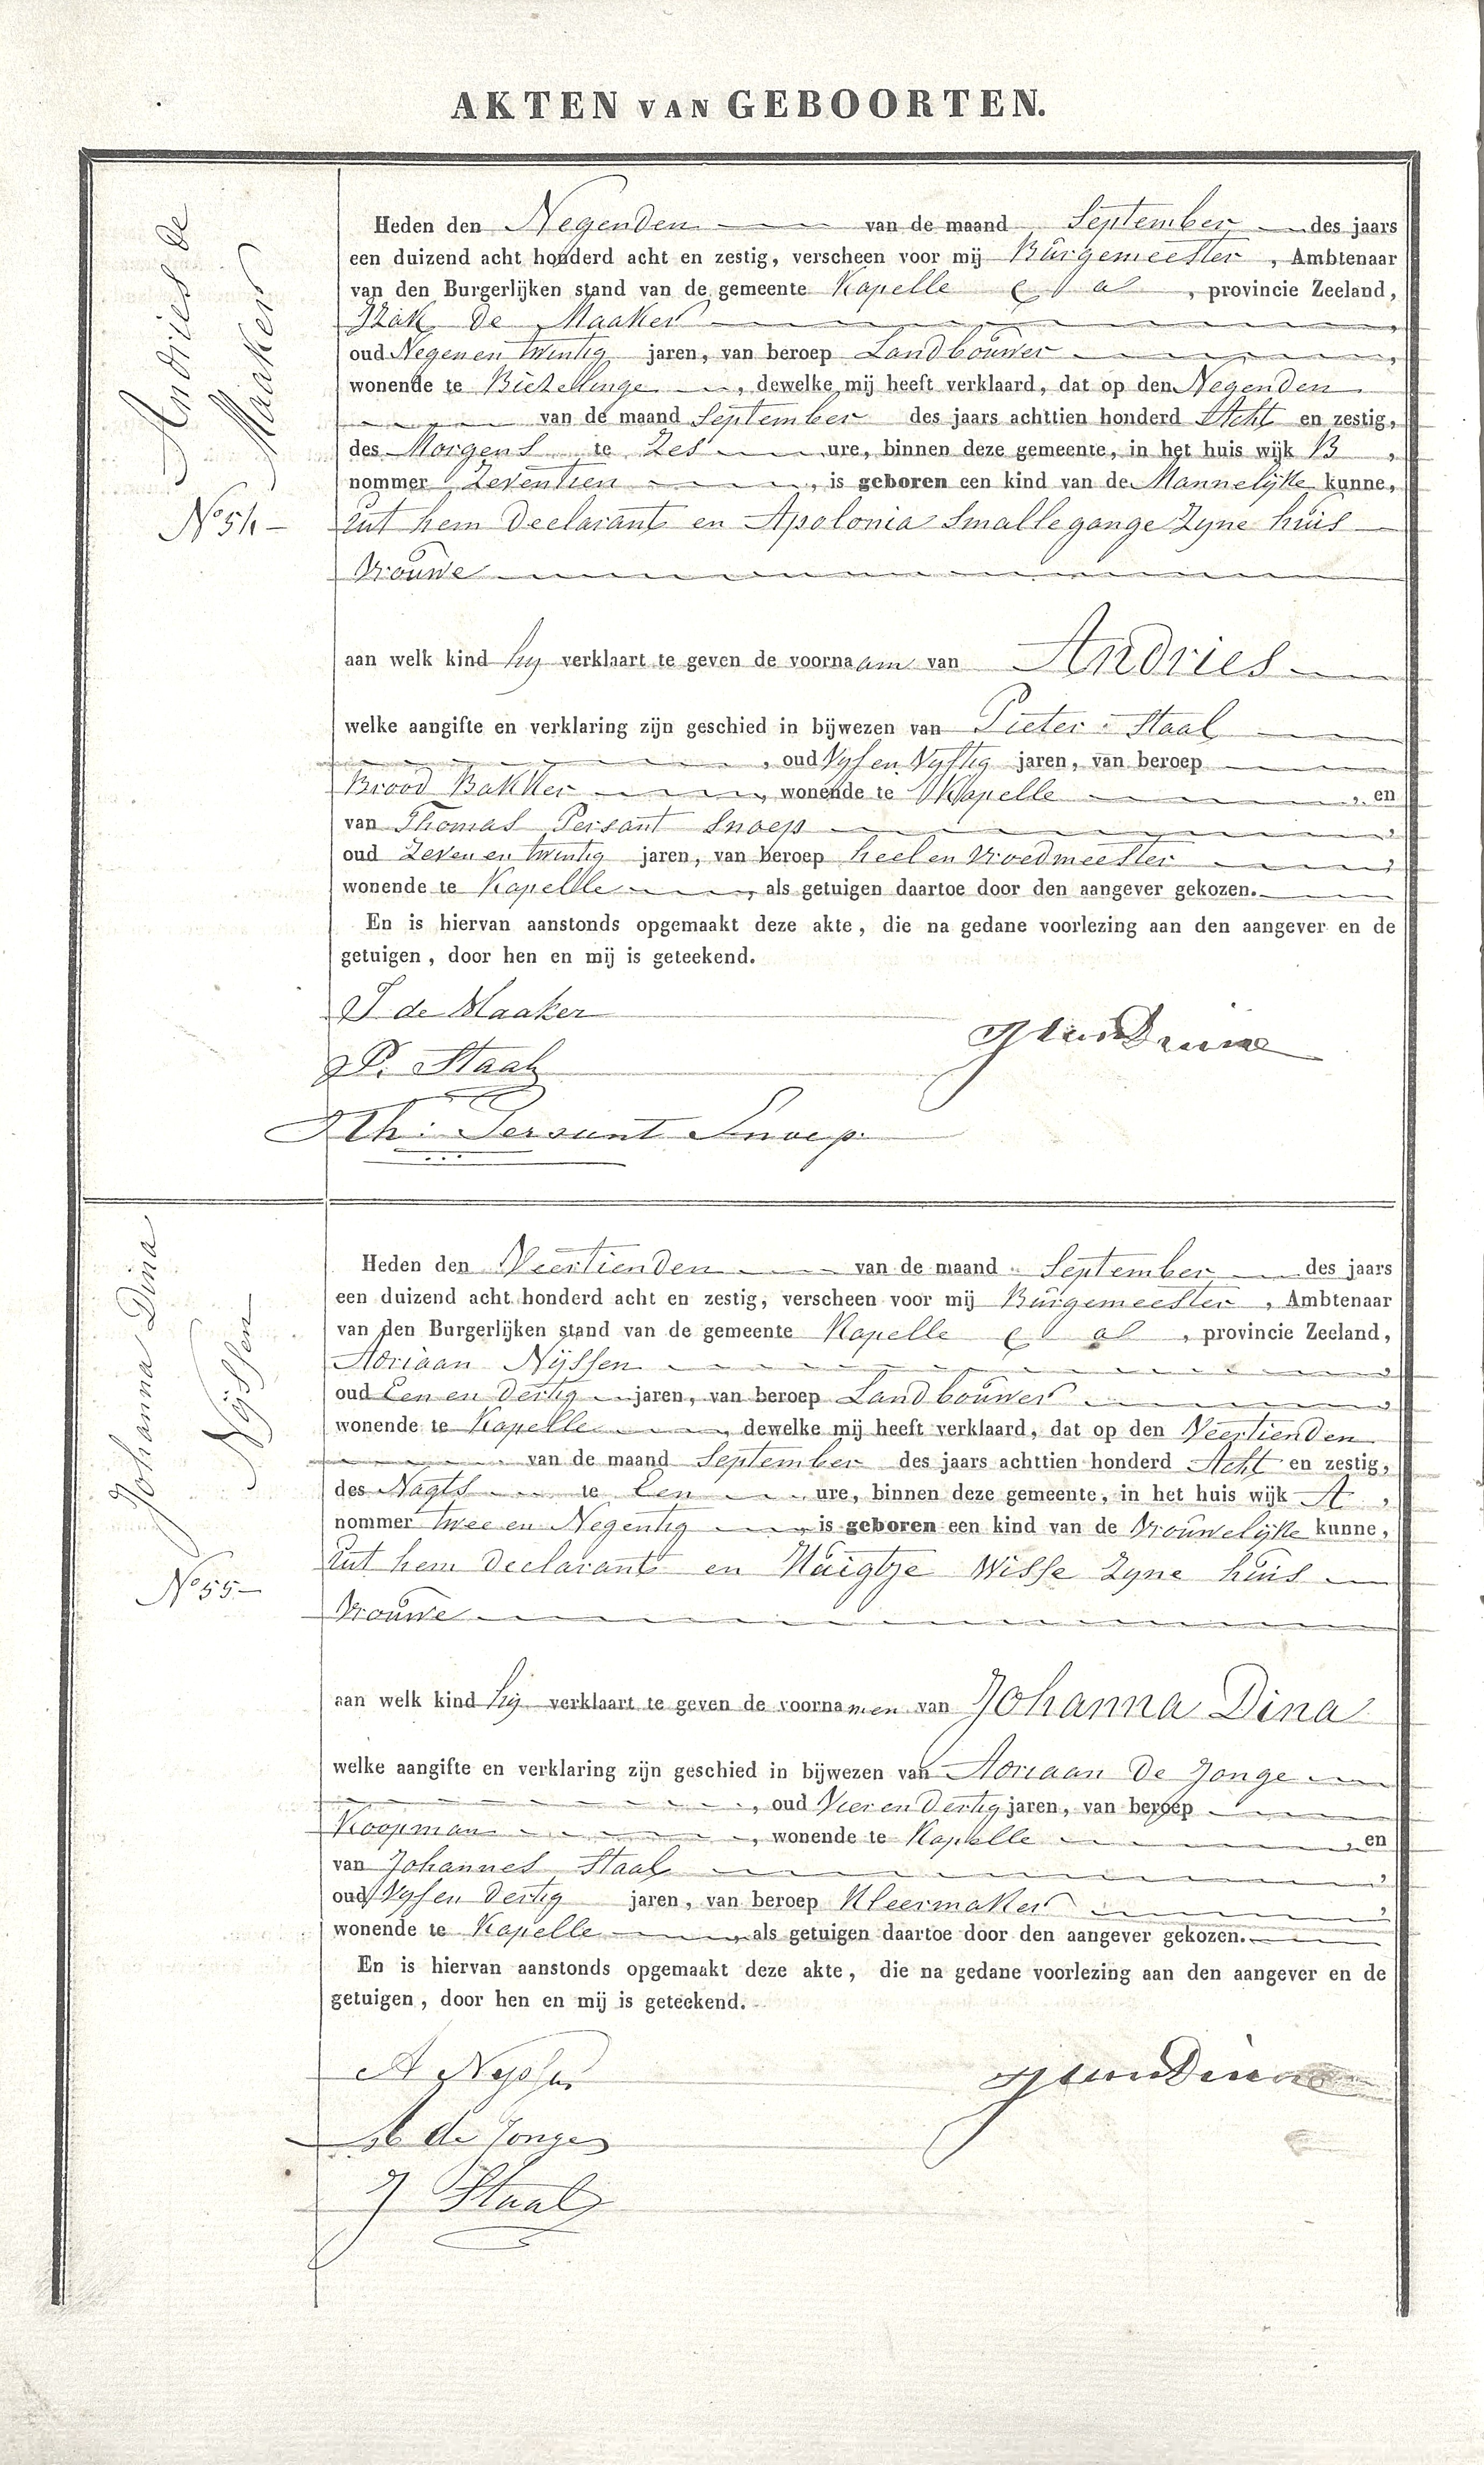 AKTEN VAN GEBOORTEN.
Andries de
Maaker
No 54
Heden den Negenden van de maand September des jaars
een duizend acht honderd acht en zestig, verscheen voor mij Burgemeester, Ambtenaar
van den Burgerlijken stand van de gemeente Kapelle &a, provincie Zeeland,
Izak de Maaker
oud Negen en twintig jaren, van beroep Landbouwer
wonende te Biezelinge, dewelke mij heeft verklaard, dat op den Negenden
van de maand September des jaars achttien honderd Acht en zestig,
des Morgens te Zes ure, binnen deze gemeente, in het huis wijk B,
nommer Zeventien, is geboren een kind van de Mannelyke kunne,
uit hem declarant en Apolonia Smallegange Zyne huis
vrouwe
aan welk kind hy verklaart te geven de voornaam van Andries
welke aangifte en verklaring zijn geschied in bijwezen van Pieter Staal
, oud Vyf en Vyftig jaren, van beroep
Brood Bakker, wonende te Kapelle, en
van Thomas Persant Snoep
oud Zeven en twintig jaren, van beroep heel en Vroedmeester
wonende te Kapelle, als getuigen daartoe door den aangever gekozen.
En is hiervan aanstonds opgemaakt deze akte, die na gedane voorlezing aan den aangever en de
getuigen, door hen en mij is geteekend.
I de Maaker
P. Staal
Th: Persant Snoep
Johanna Dina
Nijssen
No 55
Heden den Veertienden van de maand September des jaars
een duizend acht honderd acht en zestig, verscheen voor mij Burgemeester, Ambtenaar
van den Burgerlijken stand van de gemeente Kapelle &a, provincie Zeeland,
Adriaan Nijssen
oud Een en dertig jaren, van beroep Landbouwer
wonende te Kapelle, dewelke mij heeft verklaard, dat op den Veertienden
van de maand September des jaars achttien honderd Acht en zestig,
des Nagts te Een ure, binnen deze gemeente, in het huis wijk A,
nommer twee en Negentig is geboren een kind van de Vrouwelijke kunne,
uit hem declarant en Huigtje Wisse Zyne huis
vrouwe
aan welk kind hij verklaart te geven de voornamen van Johanna Dina
welke aangifte en verklaring zijn geschied in bijwezen van Adriaan de Jonge
, oud Vier en dertig jaren, van beroep
Koopman, wonende te Kapelle, en
van Johannes Staal
oud Vyf en dertig jaren, van beroep Kleermaker
wonende te Kapelle, als getuigen daartoe door den aangever gekozen.
En is hiervan aanstonds opgemaakt deze akte, die na gedane voorlezing aan den aangever en de
getuigen, door hen en mij is geteekend.
A Nijssen
A de Jonge
J Staal